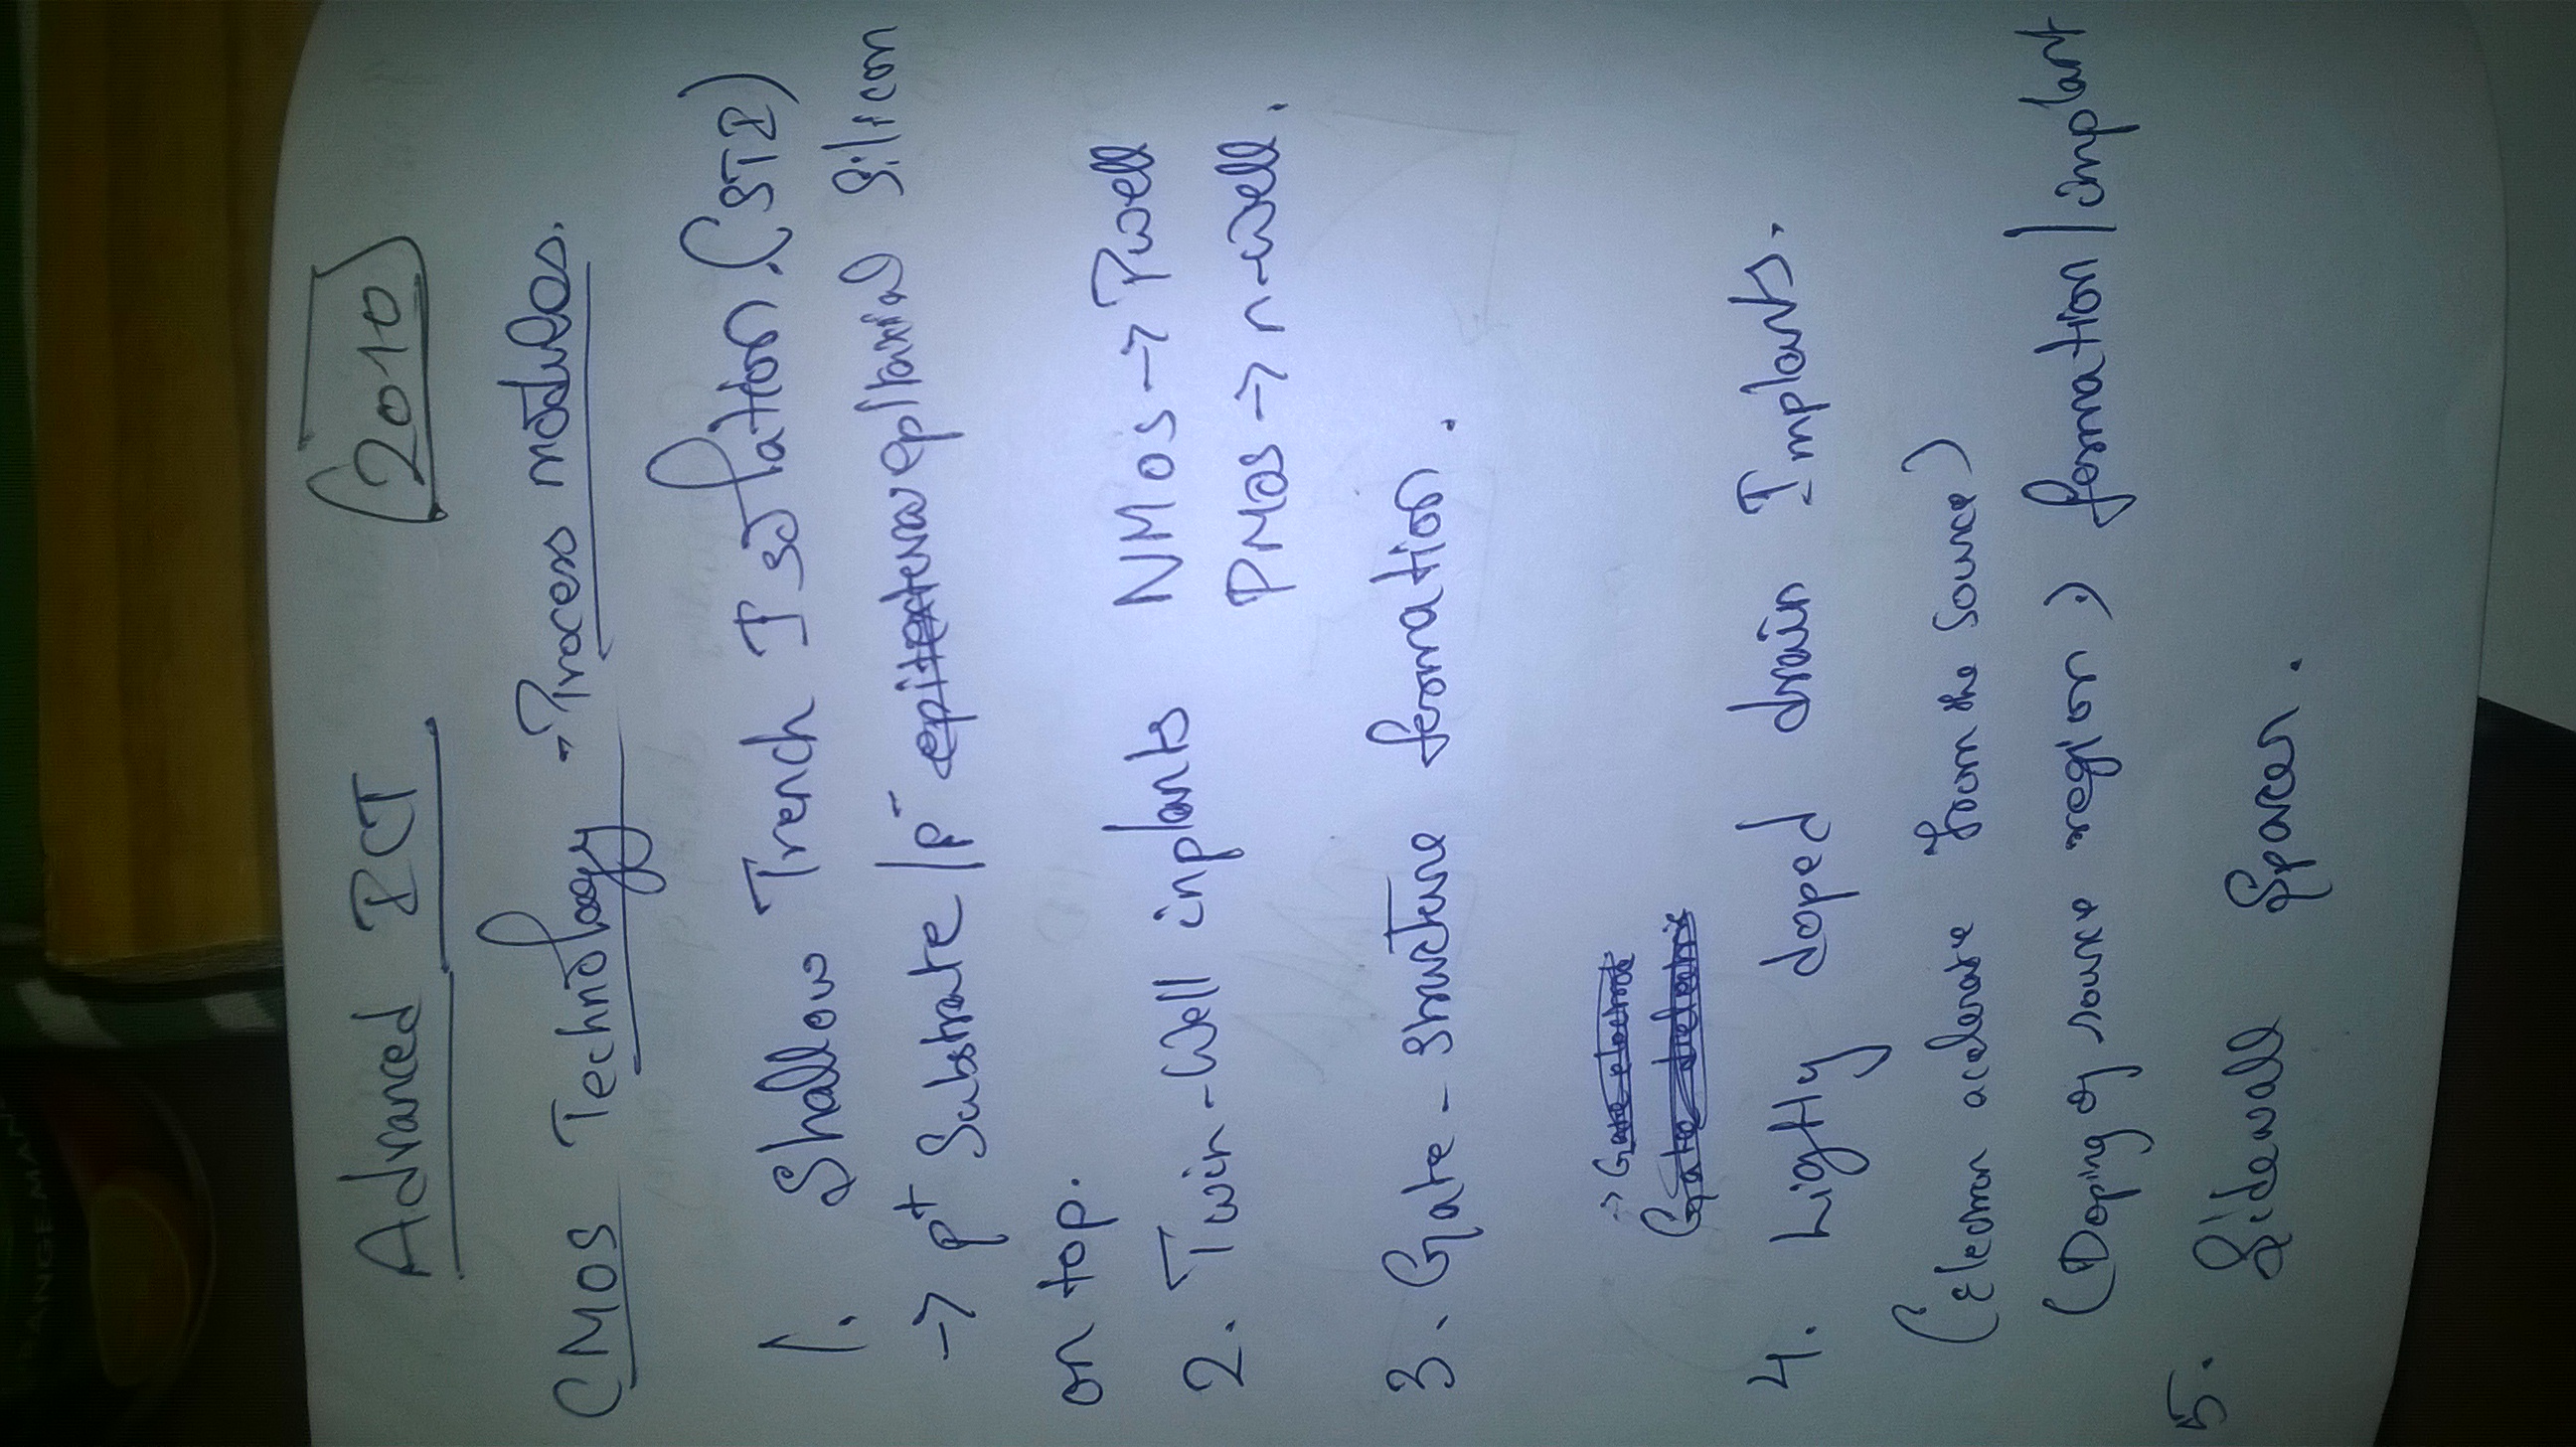 RANGE MAN
Advanced ICT (2010)
CMOS Technology - Process modules.
1. Shallow Trench Isolation. (STI)
→ p+ Substrate / p- epitaxial Silicon
on top.
2. Twin-Well inplants NMOS → Pwell
PMOS → n-well.
3. Gate-structure formation.
→ Gate electrod
Gate dielectric
4. Lightly doped drain Implants.
(Electron acelerate from the source)
(Doping of source region.) formation/implant
5. Sidewall Spacer.